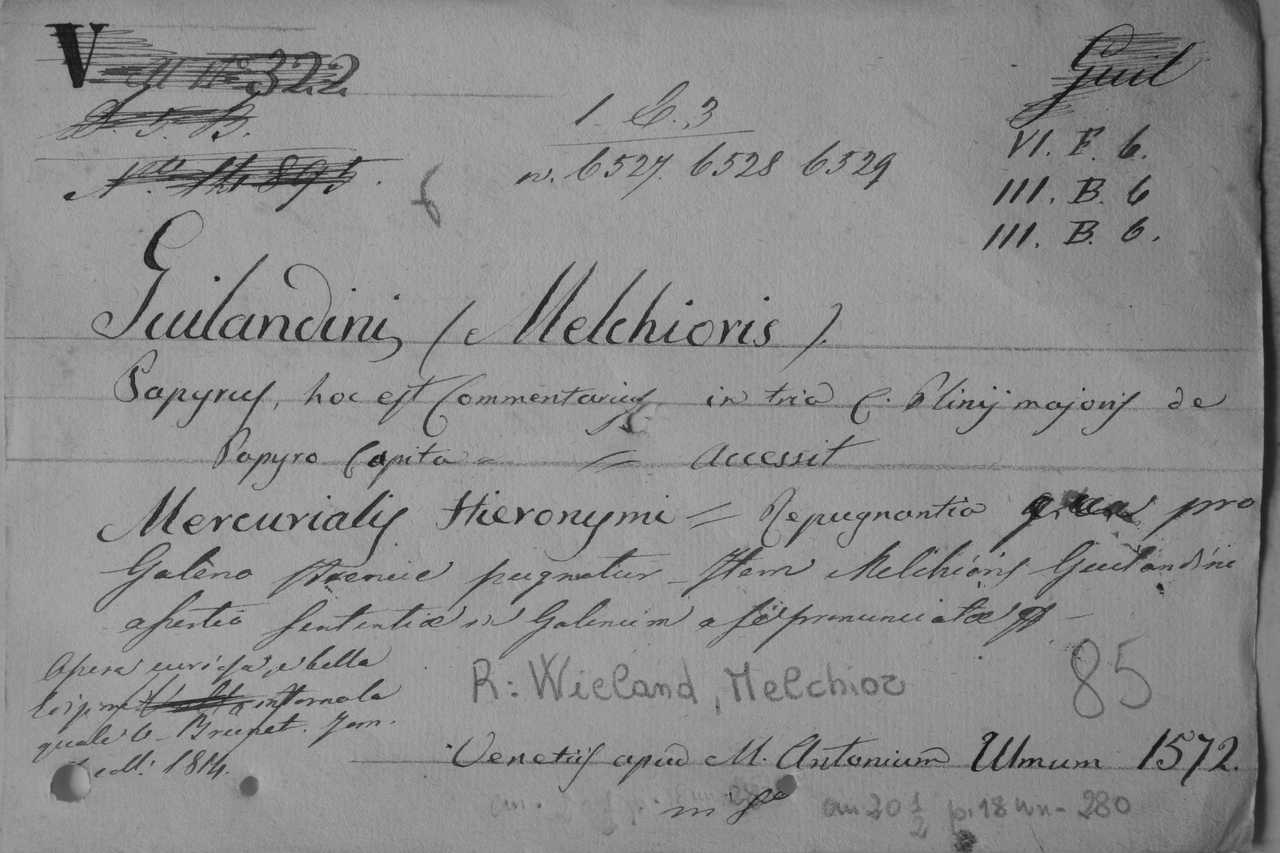 V
322
Guil
1. C. 3
VI. F. 6.
n. 6527. 6528 6529
III. B. 6
III. B. 6.
Guilandini (Melchioris).
Papyrus, hoc est Commentarius in tria C. Plinij majoris de
Papyro Capita = = Accessit
Mercurialis Hieronymi = Repugnantia qua pro
Galeno strenue pugnatur - Item Melchioris Guilandini
assertio sententiæ in Galenum a se pronunciatæ
Opera curiosa, e bella
intorno la
quale V. Brunet. Tom.
1814.
R: Wieland, Melchior
85
Venetijs apud M. Antonium Ulmum 1572.
in 4º
au 20 1/2 p. 18 un - 280